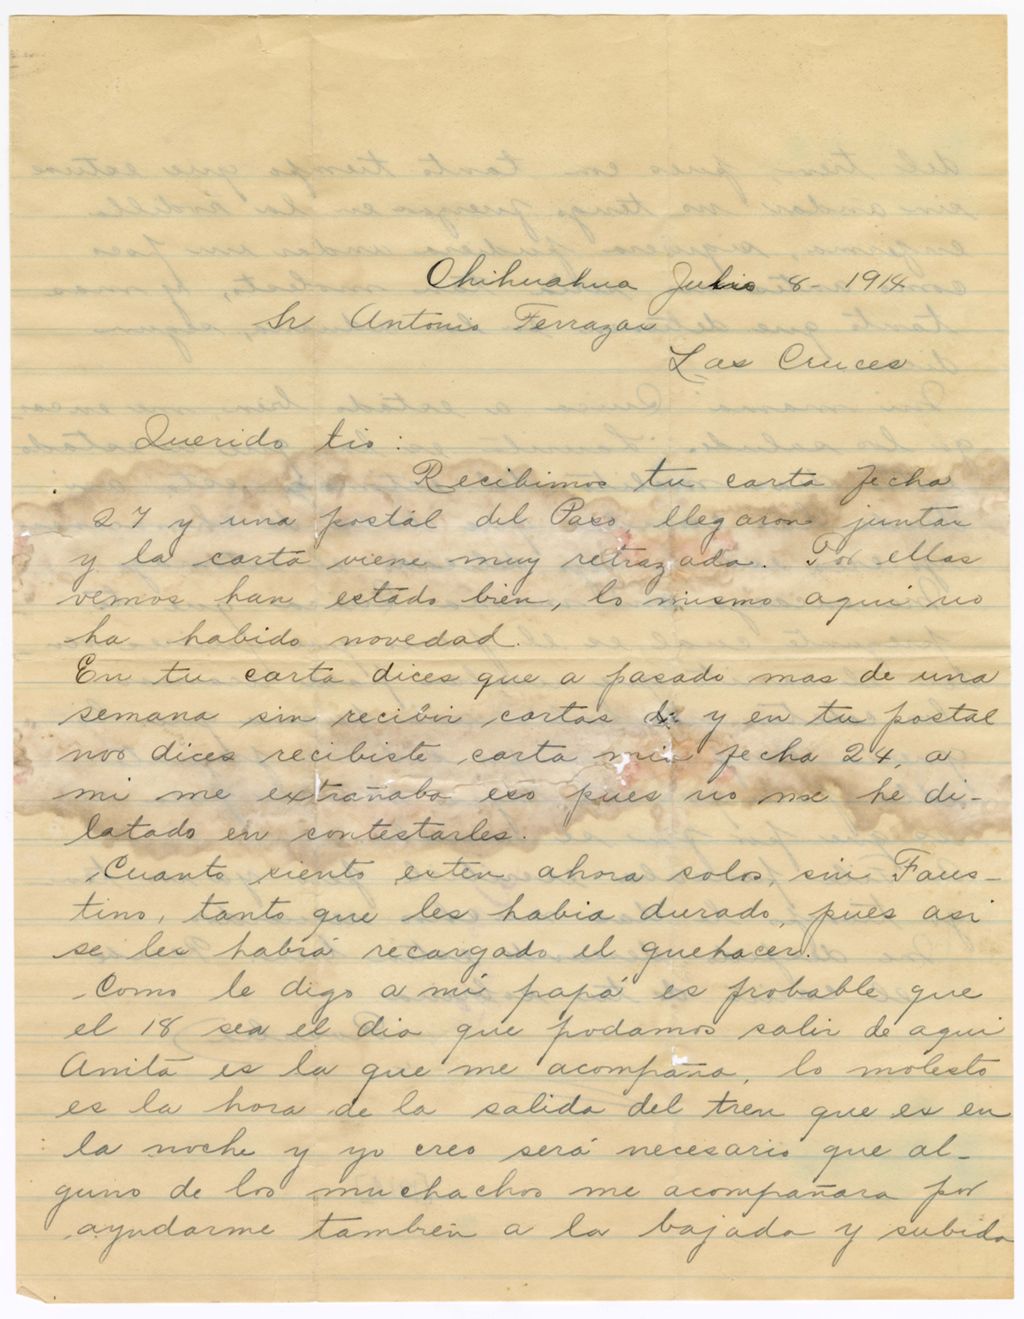 Chihuahua Julio 8 - 1914
Sr Antonio Terrazas
Las Cruces
Querido tio:
Recibimos tu carta fecha
27 y una postál del Paso, llegaron juntas
y la carta viene muy retrazada. Por ellas
vemos han estado bien, lo mismo aqui no
ha habido novedad.
En tu carta dices que a pasado mas de una
semana sin recibir cartas y en tu postal
nos dices recibiste carta mia fecha 24, a
mi me extrañaba eso pues no me he di-
latado en contestarles.
Cuanto siento esten ahora solos, sin Faus-
tino, tanto que les habia durado, pues asi
se les habrá recargado el quehacer.
Como le digo a mi papá es probable que
el 18 sea el dia que podamos salir de aqui
Anita es la que me acompaña, lo molesto
es la hora de la salida del tren que es en
la noche y yo creo será necesario que al-
guno de los muchachos me acompañara por
ayudarme tambien a la bajada y subida